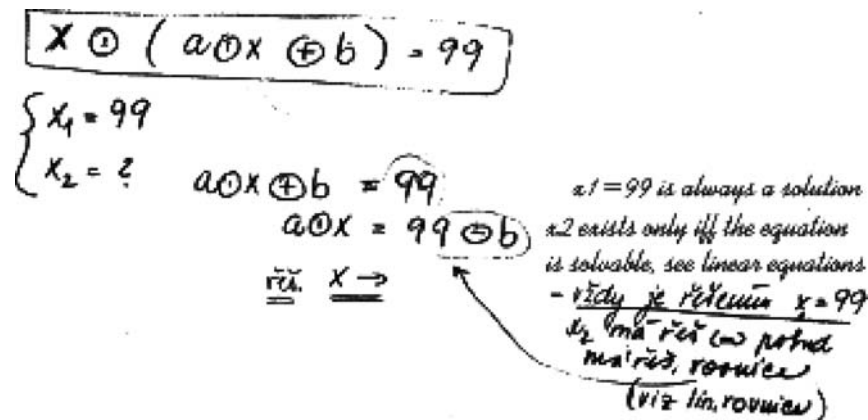 x ⊙ ( a⊙x ⊕ b ) = 99
x₁ = 99
x₂ = ?
a⊙x ⊕ b = 99
a⊙x = 99 ⊖ b
řeš. x →
x1=99 is always a solution
x2 exists only iff the equation
is solvable, see linear equations
- vždy je řešením x = 99
x₂ má řeš ⇔ pokud
má řeš. rovnice
(viz lin. rovnice)